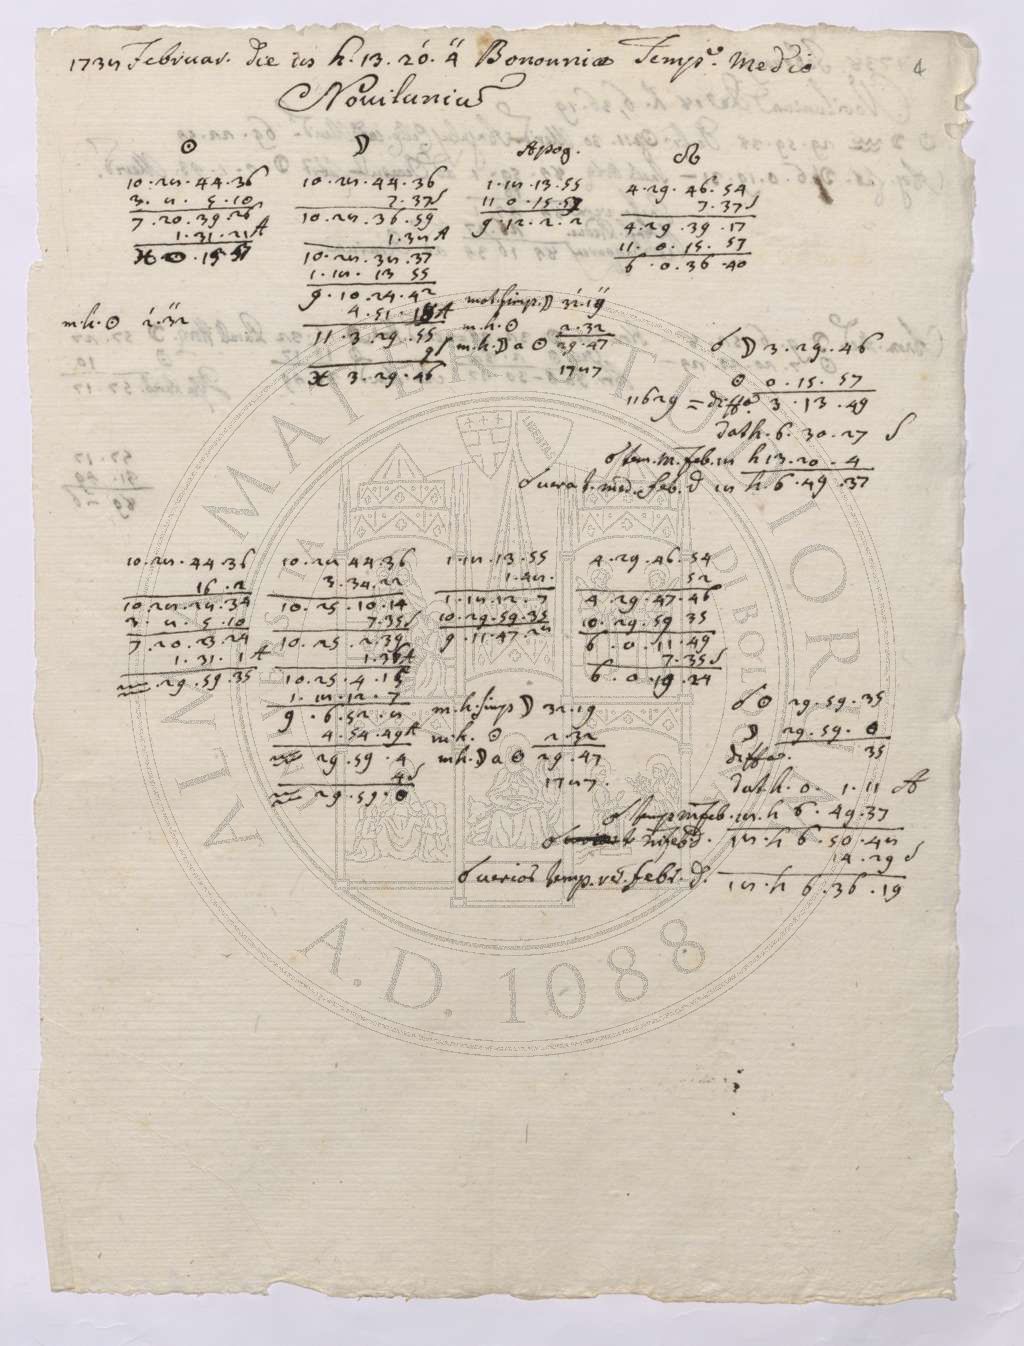 1738 Februar. Die 18 h. 13. 20. 4 Bononniæ Temp.e Medio 4
Novilunium
☉ ☽ Apog. ☊
10.28.44.36 10.28.44.36 1.18.13.55 4.29.46.54
3.8.5.10 7.37S 11 0.15.57 7.37S
7.20.39.26 10.28.36.59 9.12.2.2 4.29.39.17
1.31.21A 1.38A 11.0.15.57
♓ 0.15.57 10.28.38.37 6.0.36.40
1.18.13 55
9.10.24.42 mot.simp.☽ 32.19
4.51.18A m.h.☉ 2.32
m.h.☉ 2.32 11.3.29.55 m.h.☽ a ☉ 29.47
9S 1787
♓ 3.29.46 ☌ ☽ 3.29.46
☉ 0.15.57
11629 = diffa. 3.13.49
dat h. 6. 30. 27 S
☌ tem. m. feb. 18 h 13.20.4
☌ vera t. med. feb. d 18 h. 6.49.37
10.28.44.36 10.28 44.36 1.18.13.55 4.29.46.54
16.2 3.34.22 1.48. 52
10.28.28.34 10.25.10.14 1.18.12.7 4.29.47.46
3.8.5.10 7.35S 10.29.59.35 10.29.59 35
7.20.23.24 10.25.2.39 9.11.47.28 6.0.11.49
1.31.1A 1.36A 7.35S
♒ 29.59.35 10.25.4.15 6.0.19.24
1.18.12.7
9.6.52.8 m.h.simp ☽ 32.19 ☌ ☉ 29.59.35
4.54.49A m.h. ☉ 2.32 ☽ 29.59.0
♒ 29.59.4 m.h.☽ a ☉ 29.47 diffa. 35
4S 1787. dat h. 0. 1.11 A
♒ 29.59.0
☌ temp m feb. 18. h 6.49.37
18.h 6.50.48
14.29 S
☌ verior temp. ver. feb. d. 18.h 6.36.19
ALMA MATER STUDIORUM
A.D. 1088